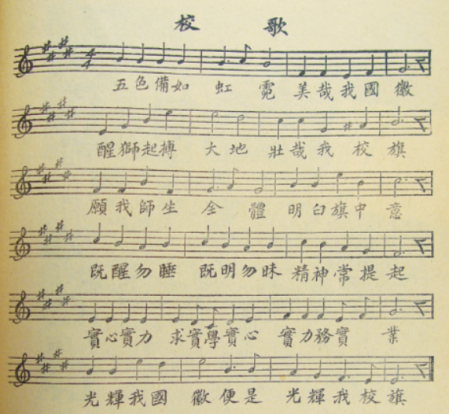 校歌
五色備如虹霓美哉我國徽
醒獅起搏大地壯哉我校旗
願我師生全體明白旗中意
既醒勿睡既明勿昧精神常提起
實心實力求實學實心實力務實業
光輝我國徽便是光輝我校旗